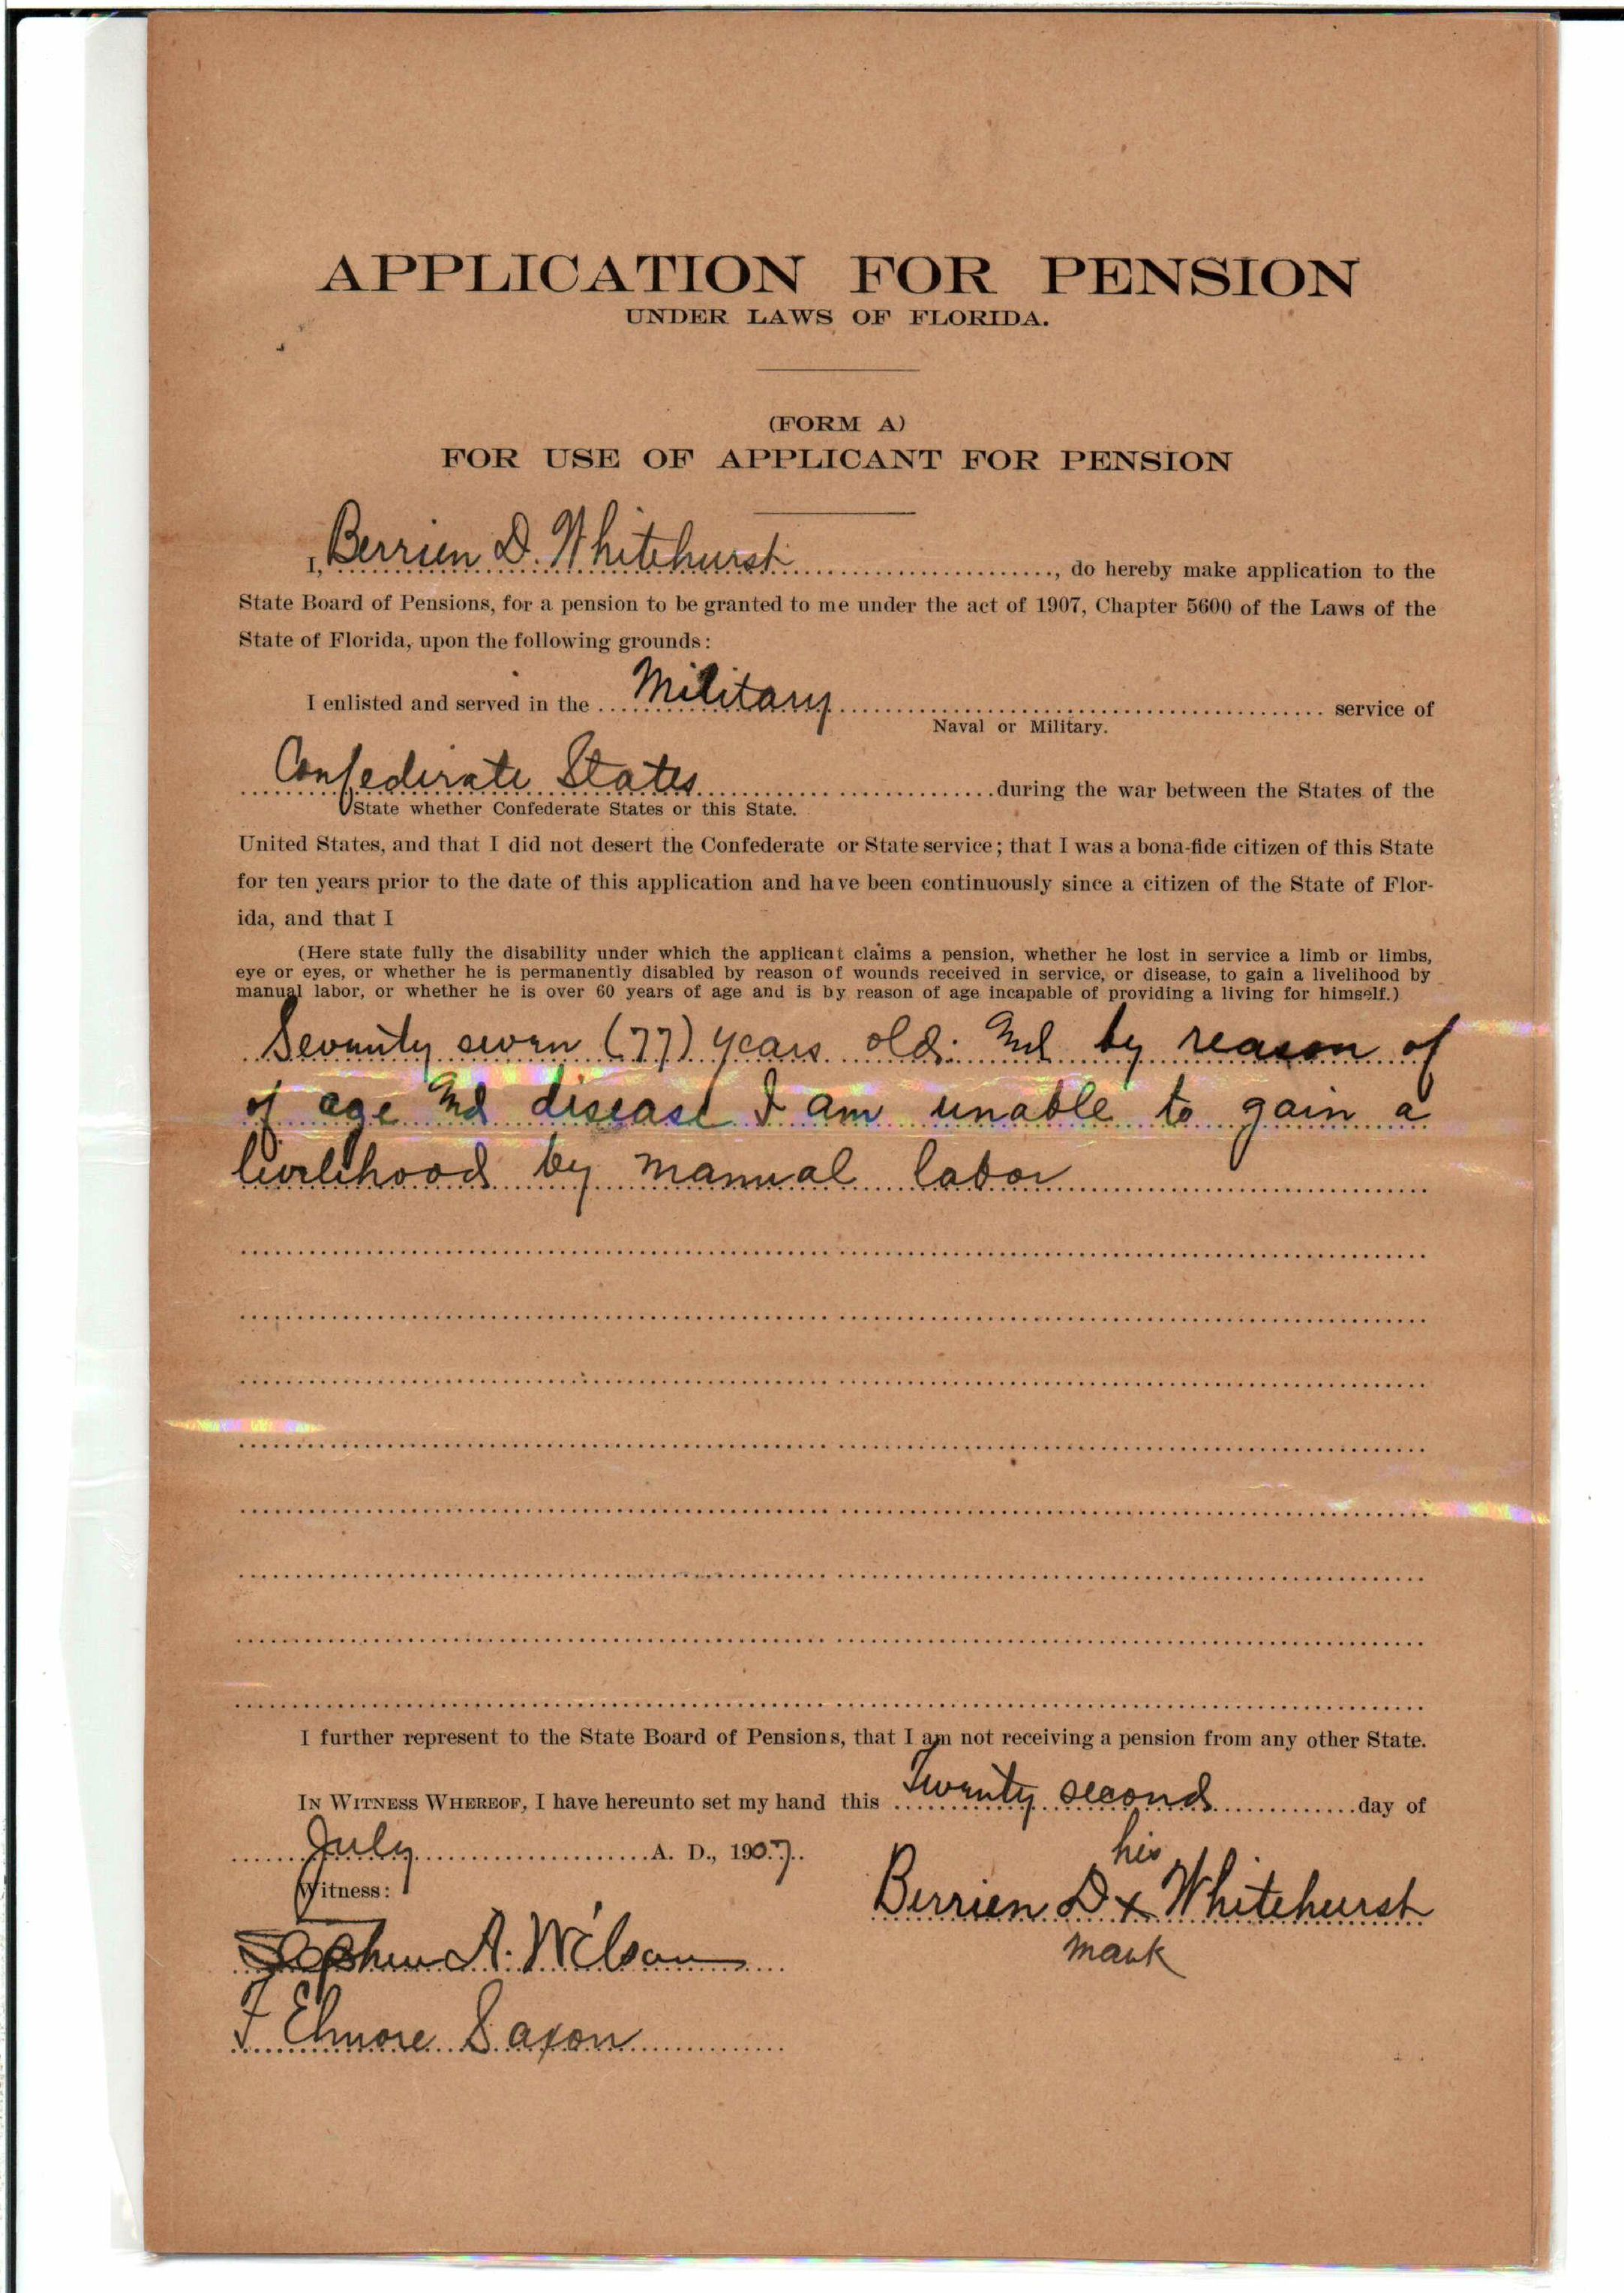 APPLICATION FOR PENSION
UNDER LAWS OF FLORIDA.
(FORM A)
FOR USE OF APPLICANT FOR PENSION
I, Berrien D. Whitehurst, do hereby make application to the
State Board of Pensions, for a pension to be granted to me under the act of 1907, Chapter 5600 of the Laws of the
State of Florida, upon the following grounds:
I enlisted and served in the Military service of
Naval or Military.
Confederate States during the war between the States of the
State whether Confederate States or this State.
United States, and that I did not desert the Confederate or State service; that I was a bona-fide citizen of this State
for ten years prior to the date of this application and have been continuously since a citizen of the State of Flor-
ida, and that I
(Here state fully the disability under which the applicant claims a pension, whether he lost in service a limb or limbs,
eye or eyes, or whether he is permanently disabled by reason of wounds received in service, or disease, to gain a livelihood by
manual labor, or whether he is over 60 years of age and is by reason of age incapable of providing a living for himself.)
Seventy seven (77) years old. And by reason of
of age and disease I am unable to gain a
livelihood by manual labor
I further represent to the State Board of Pensions, that I am not receiving a pension from any other State.
IN WITNESS WHEREOF, I have hereunto set my hand this Twenty second day of
July A. D., 1907.
his
Witness:
Berrien D x Whitehurst
mark
Stephen A. Wilson
F Elmore Saxon